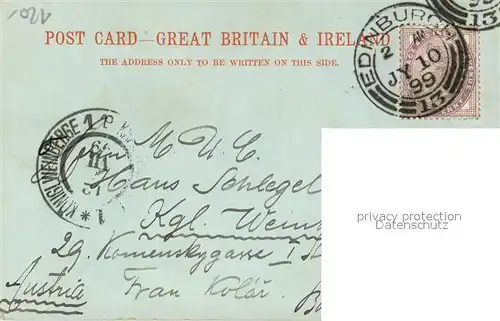 1201.
POST CARD—GREAT BRITAIN & IRELAND
THE ADDRESS ONLY TO BE WRITTEN ON THIS SIDE.
EDINBURGH
2
JY 10
99
13
99
13
KÖNIGL. WEINBERGE 1
M. U. C.
Hans Schlegel
Kgl. Wein
29. Komenskygasse I St
Austria Frau Kolář.
privacy protection
Datenschutz